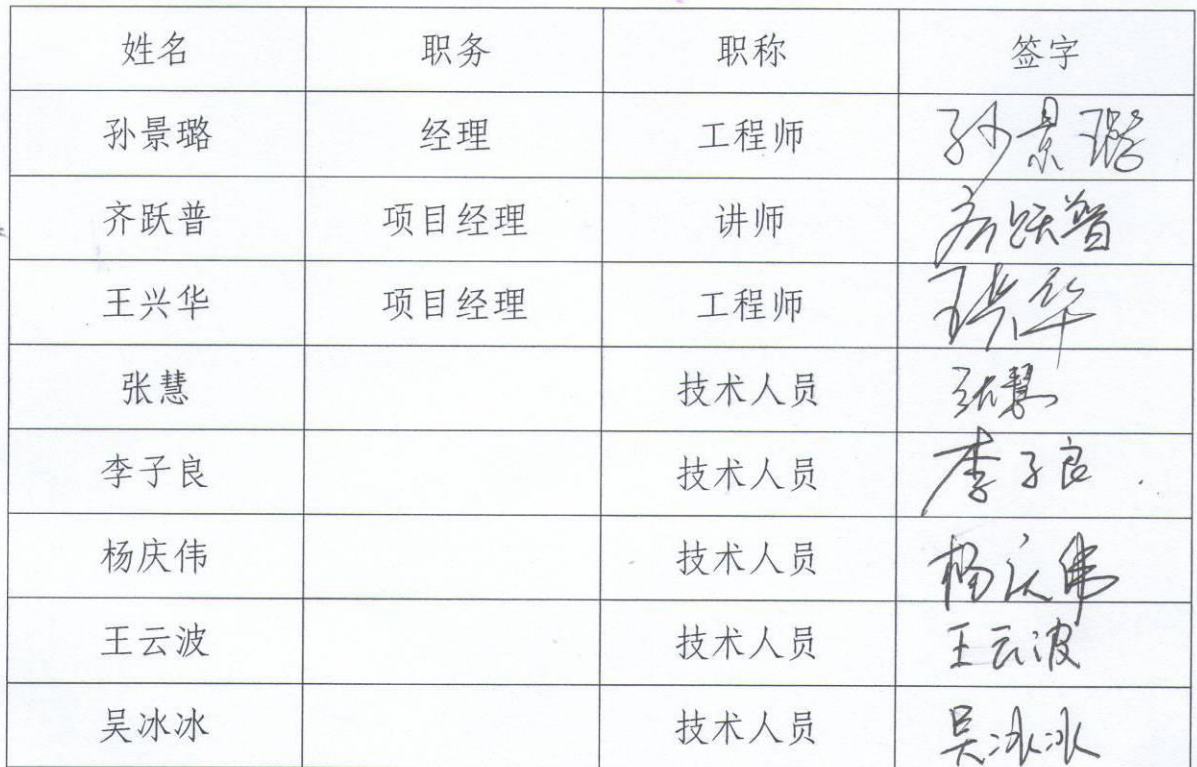 姓名 职务 职称 签字
孙景璐 经理 工程师 孙景璐
齐跃普 项目经理 讲师 齐跃普
王兴华 项目经理 工程师 王兴华
张慧 技术人员 张慧
李子良 技术人员 李子良
杨庆伟 技术人员 杨庆伟
王云波 技术人员 王云波
吴冰冰 技术人员 吴冰冰